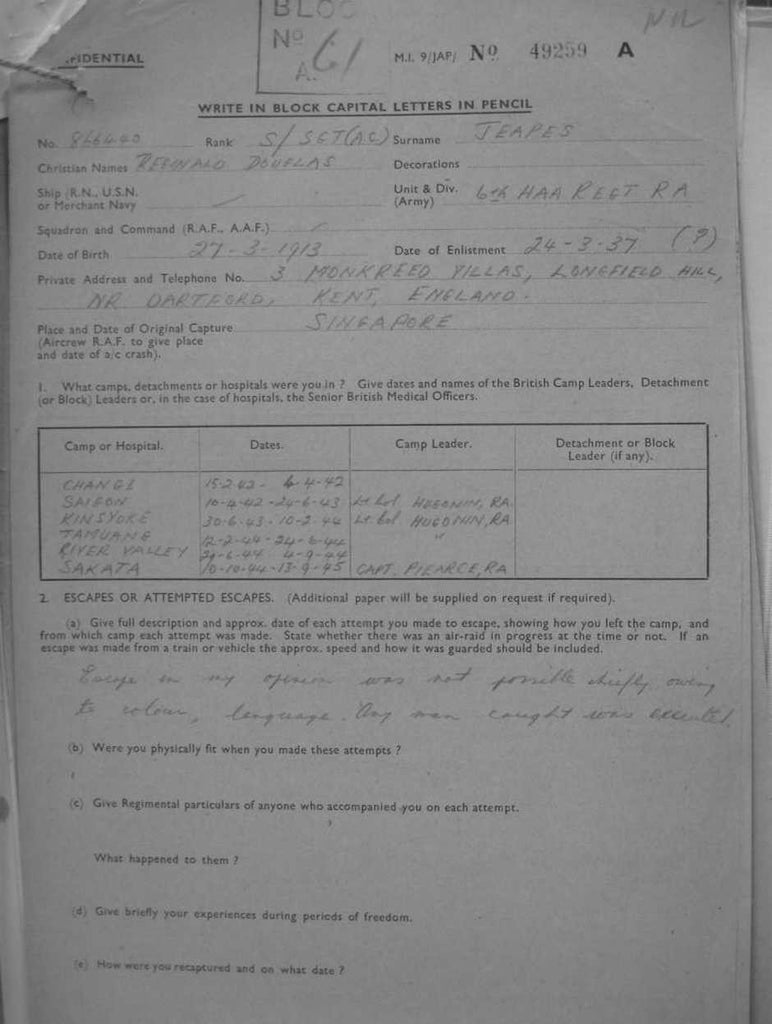 BLOC
Nº 61
A.
NIL
FIDENTIAL
M.I. 9/JAP/ Nº 49259 A
WRITE IN BLOCK CAPITAL LETTERS IN PENCIL
No. 866440 Rank S/SGT(A.C) Surname JEAPES
Christian Names REGINALD DOUGLAS Decorations
Ship (R.N., U.S.N. or Merchant Navy Unit & Div. (Army) 6th HAA REGT RA
Squadron and Command (R.A.F., A.A.F.)
Date of Birth 27-3-1913 Date of Enlistment 24-3-37 (?)
Private Address and Telephone No. 3 MONKREED VILLAS, LONGFIELD HILL,
NR DARTFORD, KENT, ENGLAND.
Place and Date of Original Capture SINGAPORE
(Aircrew R.A.F. to give place
and date of a/c crash).
1. What camps, detachments or hospitals were you in ? Give dates and names of the British Camp Leaders, Detachment
(or Block) Leaders or, in the case of hospitals, the Senior British Medical Officers.
Camp or Hospital. Dates. Camp Leader. Detachment or Block Leader (if any).
CHANGI 15-2-42 - 6-4-42
SAIGON 10-4-42 - 24-6-43 Lt Col HUGONIN, RA
KINSYOKE 30-6-43 - 10-2-44 Lt Col HUGONIN, RA
TAMUANG 12-2-44 - 24-6-44 "
RIVER VALLEY 29-6-44 4-9-44
SAKATA 10-10-44 - 13-9-45 CAPT. PIEARCE, RA
2. ESCAPES OR ATTEMPTED ESCAPES. (Additional paper will be supplied on request if required).
(a) Give full description and approx. date of each attempt you made to escape, showing how you left the camp, and
from which camp each attempt was made. State whether there was an air-raid in progress at the time or not. If an
escape was made from a train or vehicle the approx. speed and how it was guarded should be included.
Escape in my opinion was not possible chiefly owing
to colour, language. Any man caught was executed.
(b) Were you physically fit when you made these attempts ?
(c) Give Regimental particulars of anyone who accompanied you on each attempt.
What happened to them ?
(d) Give briefly your experiences during periods of freedom.
(e) How were you recaptured and on what date ?